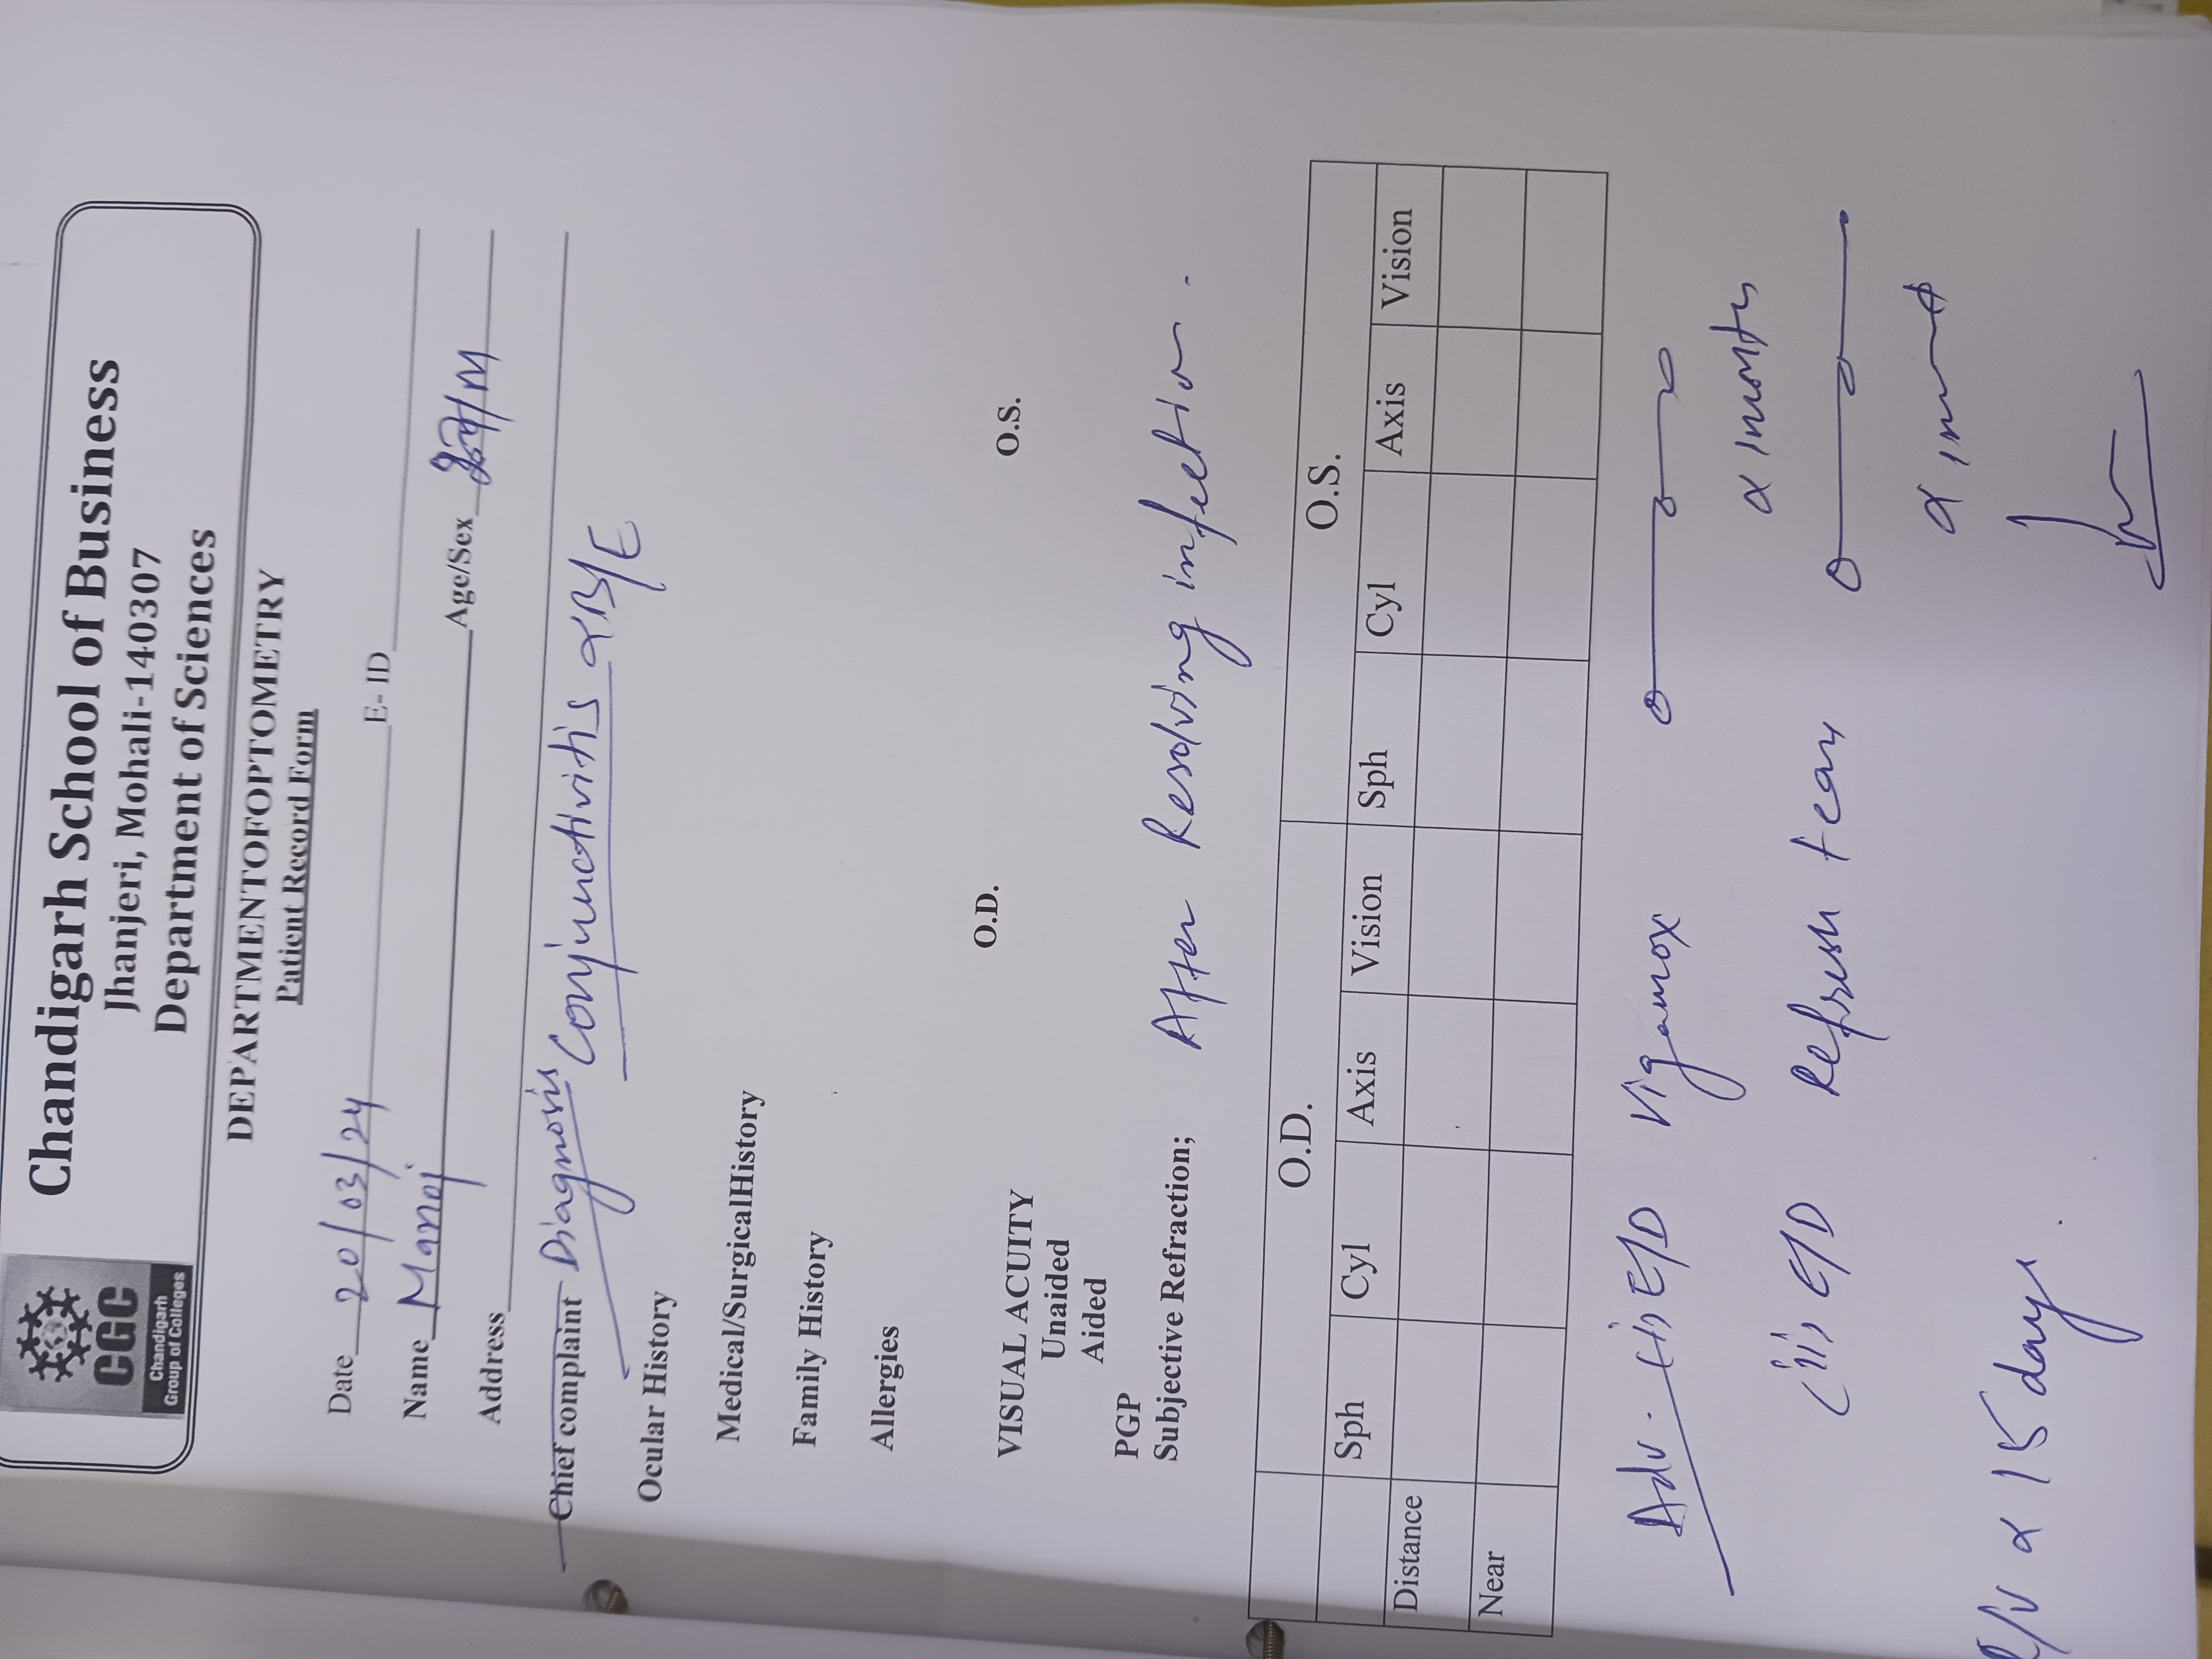 CGC
Chandigarh
Group of Colleges
Chandigarh School of Business
Jhanjeri, Mohali-140307
Department of Sciences
DEPARTMENTOFOPTOMETRY
Patient Record Form
Date 20/03/24 E- ID
Name Manoj Age/Sex /M
Address
Chief complaint Diagnosis Conjunctivitis α B/E
Ocular History
Medical/SurgicalHistory
Family History
Allergies
O.D. O.S.
VISUAL ACUITY
Unaided
Aided
PGP
Subjective Refraction; After Resolving infection.
O.D. O.S.
Sph Cyl Axis Vision Sph Cyl Axis Vision
Distance
Near
Adv. (i) E/D Vigamox
α 1 months
(ii) E/D Refresh tear
α 1
/V α 15 days.